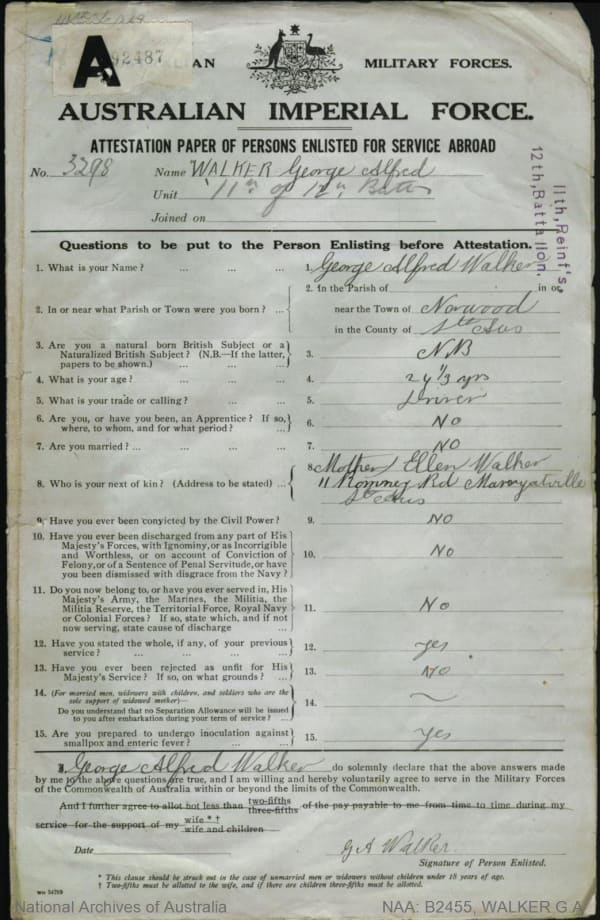 A 92487
AUSTRALIAN MILITARY FORCES.
AUSTRALIAN IMPERIAL FORCE.
ATTESTATION PAPER OF PERSONS ENLISTED FOR SERVICE ABROAD
No. 3298 Name WALKER George Alfred
Unit 11th of 12th Battn
Joined on
11th, Reinf's,
12th, Battalion.
Questions to be put to the Person Enlisting before Attestation.
1. What is your Name? ... ... ... 1. George Alfred Walker
2. In or near what Parish or Town were you born? ... 2. In the Parish of in or
near the Town of Norwood
in the County of Sth Aus
3. Are you a natural born British Subject or a
Naturalized British Subject? (N.B.—If the latter,
papers to be shown.) ... ... 3. NB
4. What is your age? ... ... ... 4. 24 1/3 yrs
5. What is your trade or calling? ... ... 5. Driver
6. Are you, or have you been, an Apprentice? If so,
where, to whom, and for what period? ... 6. No
7. Are you married? ... ... ... 7. NO
8. Who is your next of kin? (Address to be stated) ... 8. Mother Ellen Walker
11 Romney Rd Marryatville
Sth Aus
9. Have you ever been convicted by the Civil Power? 9. NO
10. Have you ever been discharged from any part of His
Majesty's Forces, with Ignominy, or as Incorrigible
and Worthless, or on account of Conviction of
Felony, or of a Sentence of Penal Servitude, or have
you been dismissed with disgrace from the Navy? 10. No
11. Do you now belong to, or have you ever served in, His
Majesty's Army, the Marines, the Militia, the
Militia Reserve, the Territorial Force, Royal Navy
or Colonial Forces? If so, state which, and if not
now serving, state cause of discharge ... 11. No
12. Have you stated the whole, if any, of your previous
service? ... ... ... ... 12. yes
13. Have you ever been rejected as unfit for His
Majesty's Service? If so, on what grounds? ... 13. NO
14. (For married men, widowers with children, and soldiers who are the
sole support of widowed mother)—
Do you understand that no Separation Allowance will be issued
to you after embarkation during your term of service? ... 14. ~
15. Are you prepared to undergo inoculation against
smallpox and enteric fever? ... ... 15. Yes
I, George Alfred Walker do solemnly declare that the above answers made
by me to the above questions are true, and I am willing and hereby voluntarily agree to serve in the Military Forces
of the Commonwealth of Australia within or beyond the limits of the Commonwealth.
And I further agree to allot not less than two-fifths three-fifths of the pay payable to me from time to time during my
service for the support of my wife * † wife and children
Date G A Walker
Signature of Person Enlisted.
* This clause should be struck out in the case of unmarried men or widowers without children under 18 years of age.
† Two-fifths must be allotted to the wife, and if there are children three-fifths must be allotted.
National Archives of Australia NAA: B2455, WALKER G A